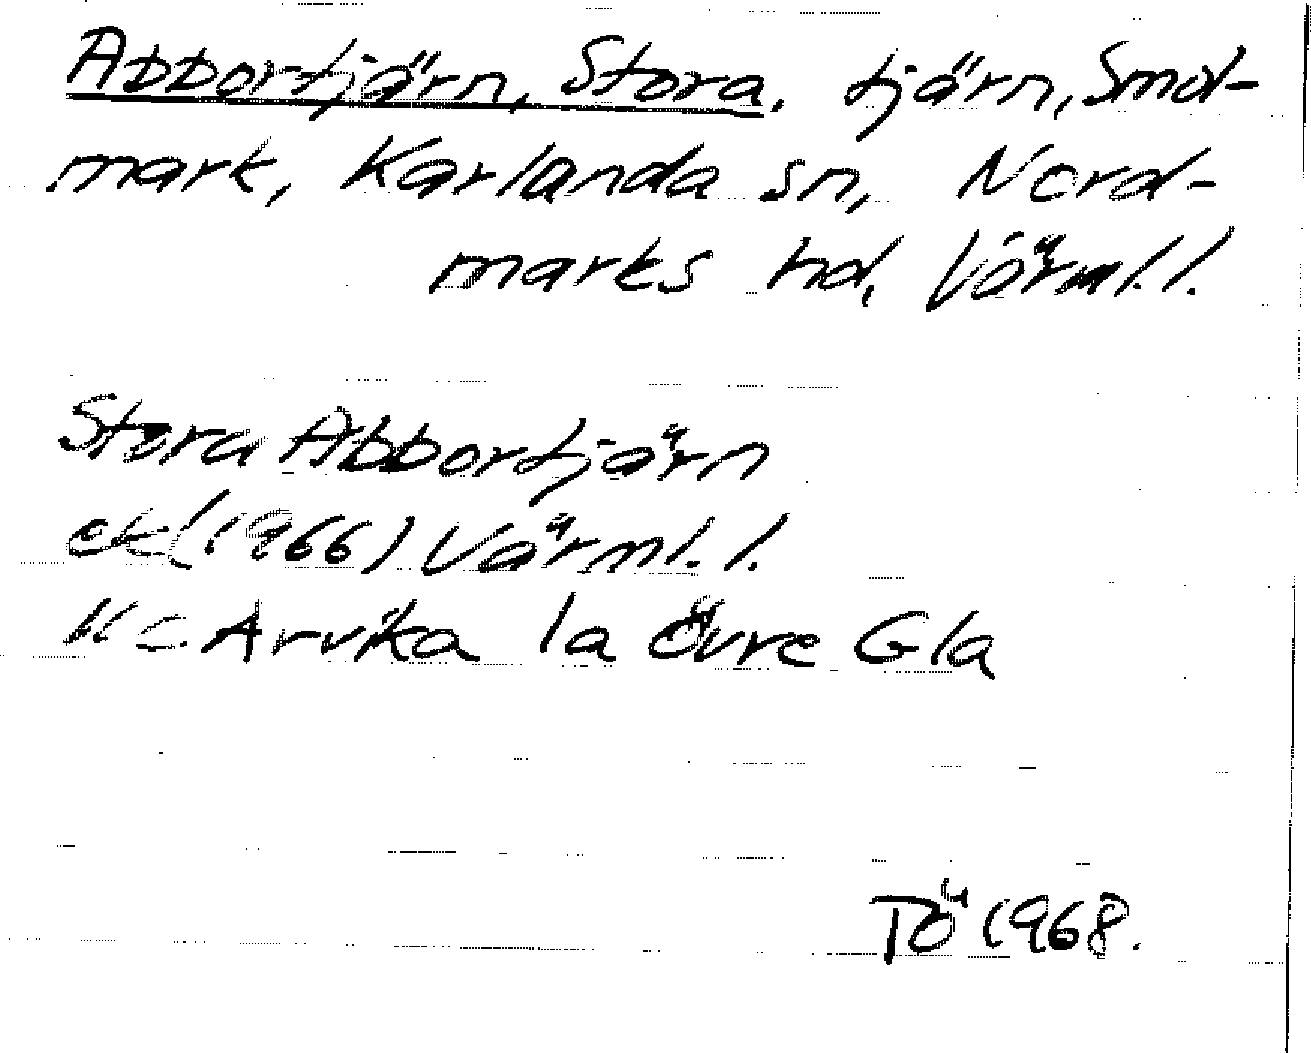 Abbortjärn, Stora, tjärn, Små-
mark, Karlanda sn, Nord-
marks hd, Värml. l.
Stora Abbortjärn
ek (1966) Värml. l.
Arvika la Övre Gla
TÖ 1968.